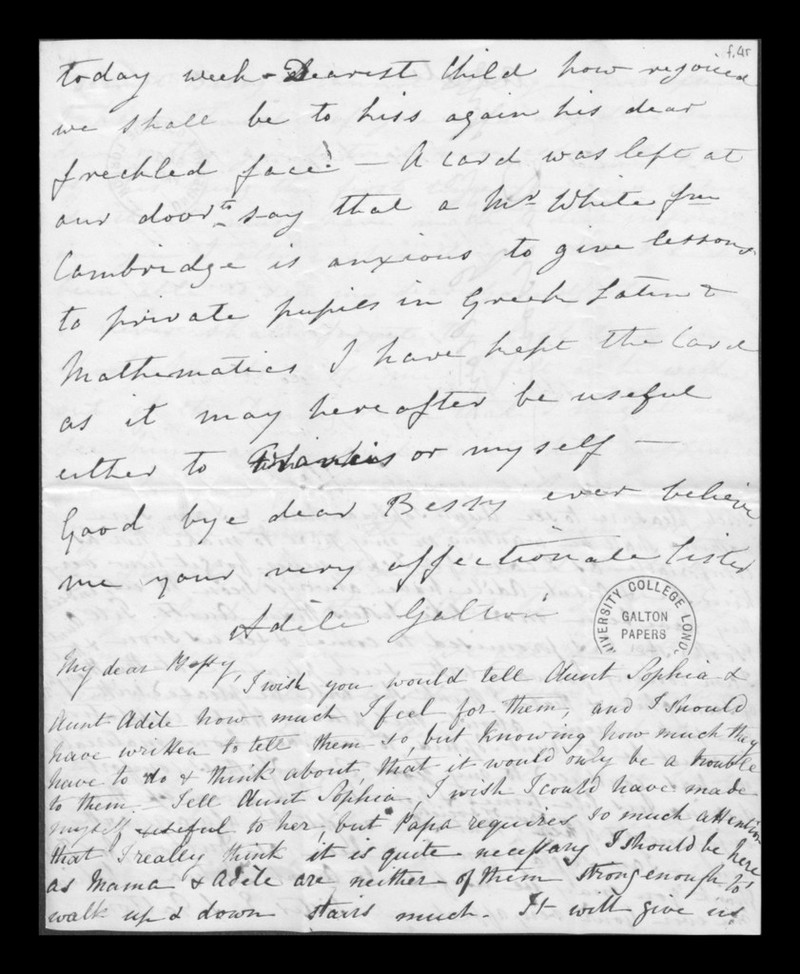 f.4r
today week - Dearest Child how rejoiced
we shall be to kiss again his dear
freckled face! - A card was left at
our door to say that a Mr White fm
Cambridge is anxious to give lessons
to private pupils in Greek Latin &
Mathematics I have kept the Card
as it may hereafter be useful
either to Francis or myself -
Good bye dear Bessy ever believe
me your very affectionate Sister
Adele Galton
UNIVERSITY COLLEGE LOND
GALTON
PAPERS
My dear Bessy,
I wish you would tell Aunt Sophia &
Aunt Adèle how much I feel for them, and I should
have written to tell them so, but knowing how much they
have to do & think about, that it would only be a trouble
to them. Tell Aunt Sophia, I wish I could have made
myself useful to her, but Papa requires so much attention
that I really think it is quite necessary I should be here
as Mama & Adèle are neither of them strong enough to
walk up & down stairs much. It will give us